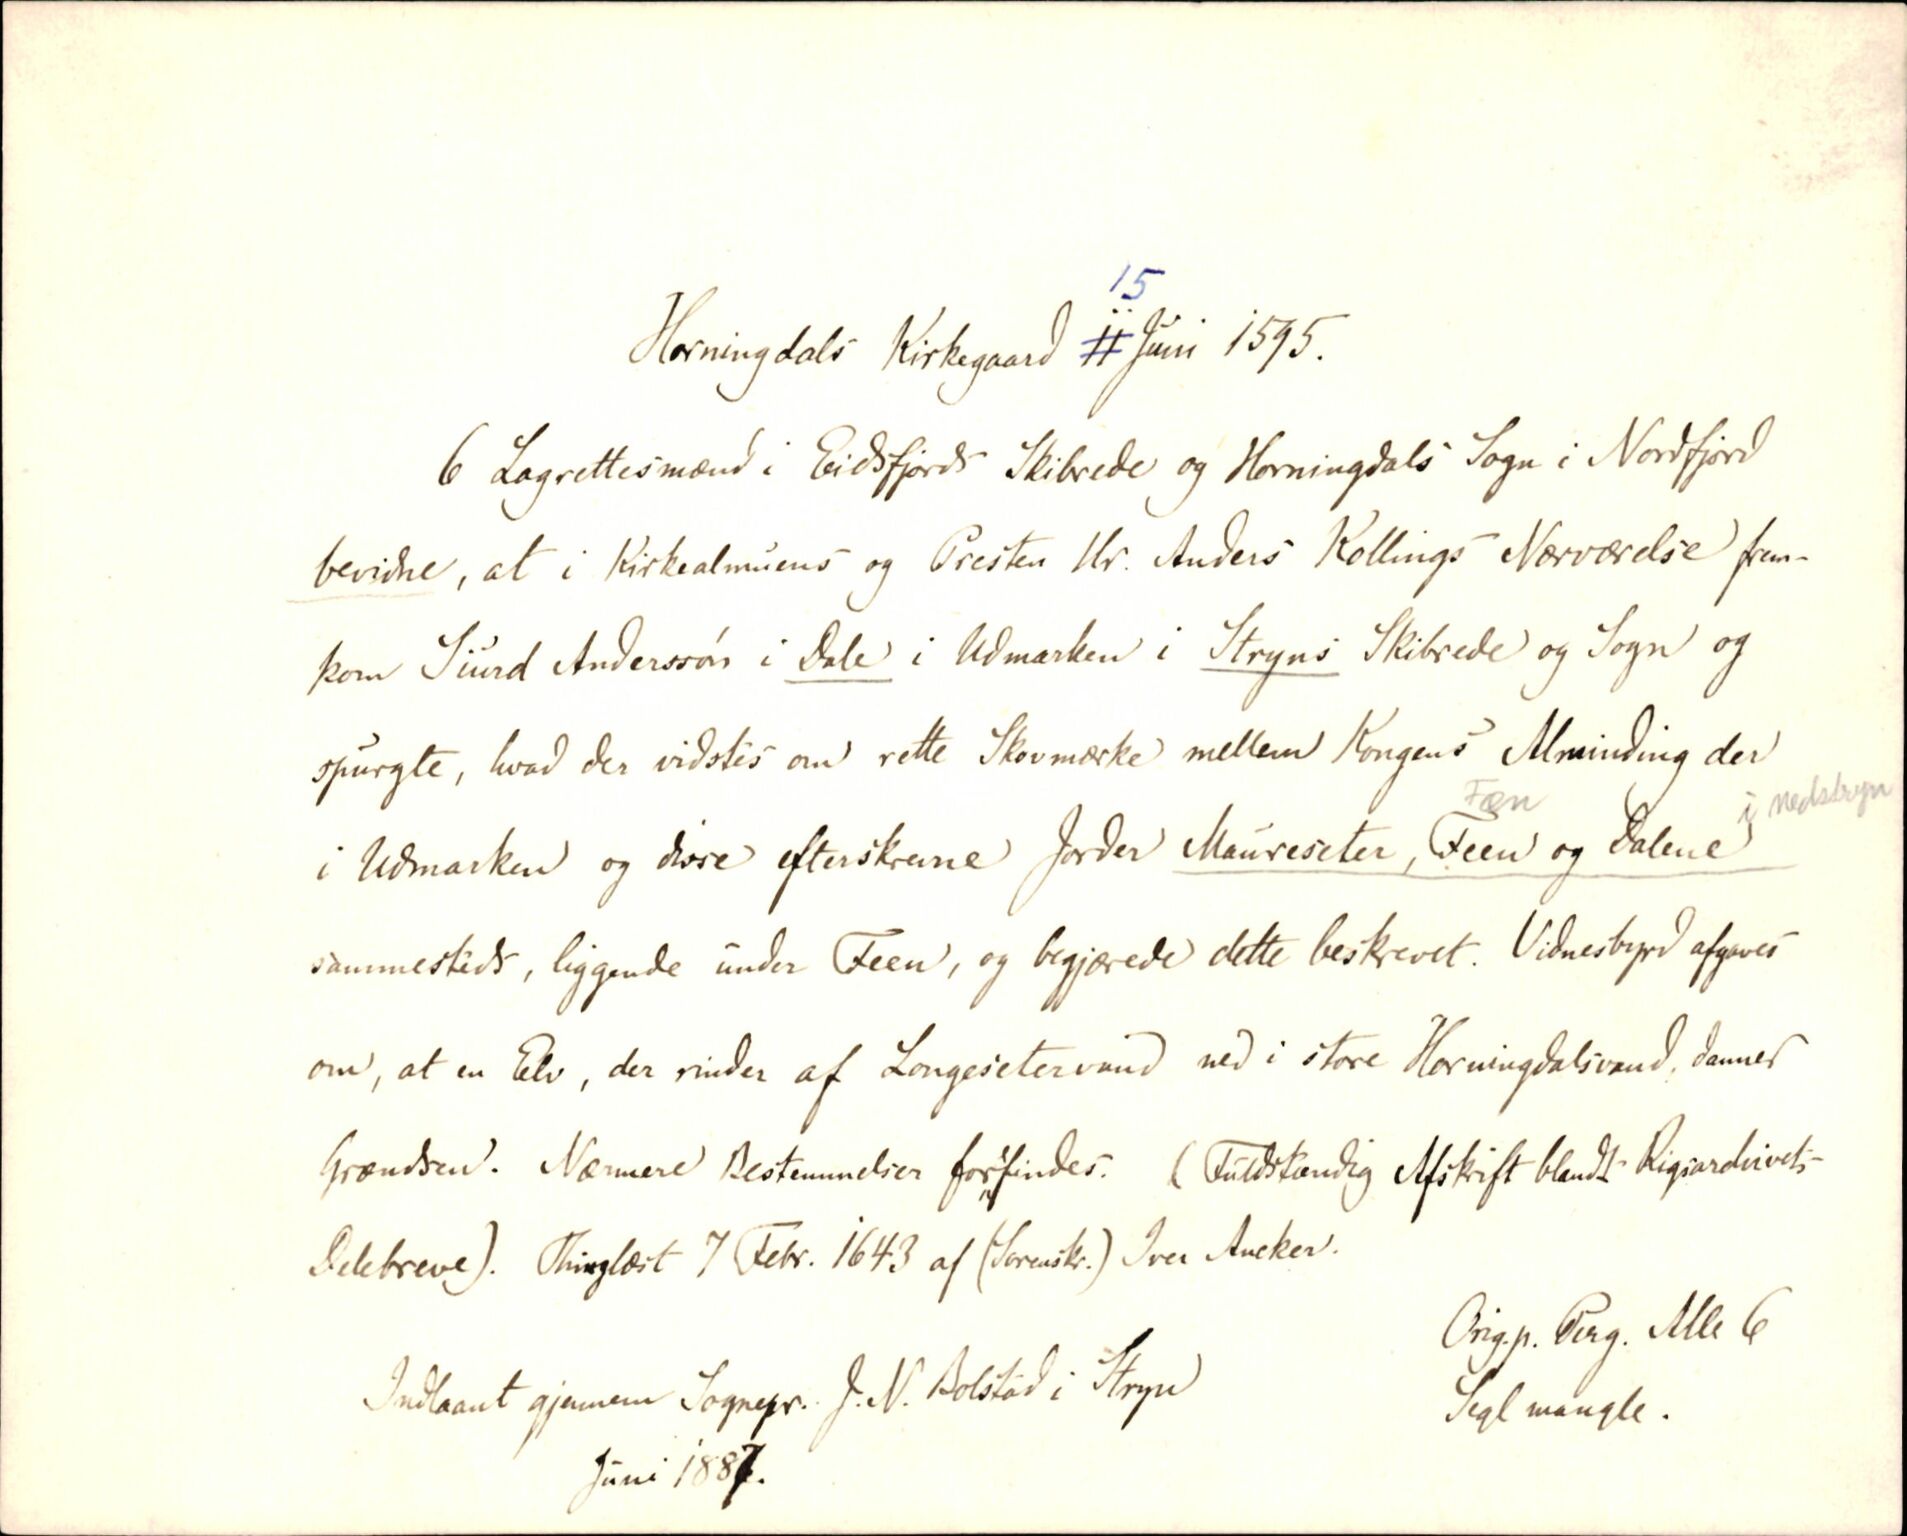 15
Horningdals Kirkegaard 11 Juni 1595.
6 Lagrettesmænd i Eidsfjords Skibrede og Horningdals Sogn i Nordfjord
bevidne, at i Kirkealmuens og Presten Hr. Anders Kollings Nærværelse frem-
kom Siurd Anderssøn i Dale i Udmarken i Stryns Skibrede og Sogn og
spurgte, hvad der vidstes om rette Skovmærke mellem Kongens Alminding der
Fæn
i Nedstryn
i Udmarken og disse efterskrevne Jorder Maureseter, Feen og Dalene
sammesteds, liggende under Feen, og begjærede dette beskrevet. Vidnesbyrd afgaves
om, at en Elv, der rinder af Longesetervand ned i store Horningdalsvand, danner
Grændsen. Nærmere Bestemmelser forefindes. (Fuldstændig Afskrift blandt Rigsarchivets
Delebreve). Thinglæst 7 Febr. 1643 af (Sorenskr.) Iver Ancker.
Orig. p. Perg. Alle 6
Segl mangle.
Indlaant gjennem Sognepr. J. N. Bolstad i Stryn
Juni 1887.